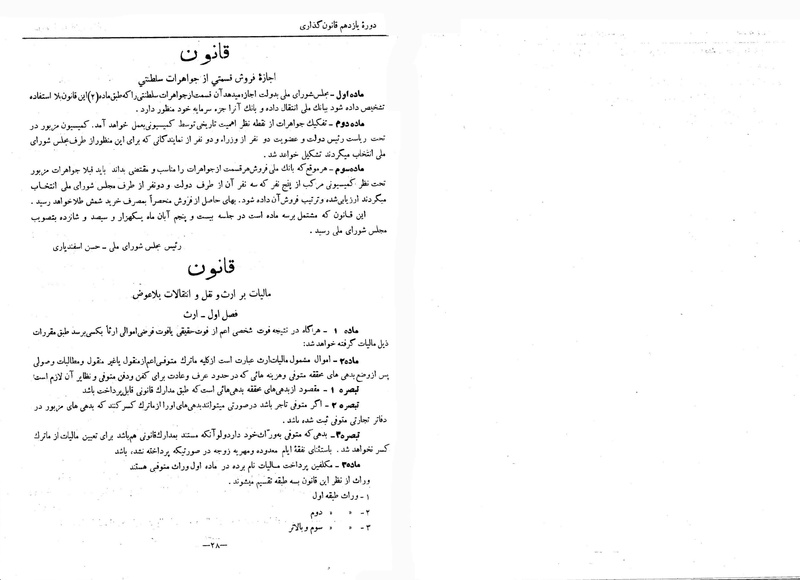 دورهٔ یازدهم قانون گذاری
قانون
اجازهٔ فروش قسمتی از جواهرات سلطنتی
ماده اول ـ مجلس شورای ملی بدولت اجازه میدهد آن قسمت از جواهرات سلطنتی را که طبق ماده (۲) این قانون بلا استفاده
تشخیص داده شود ببانك ملی انتقال داده و بانك آنرا جزء سرمایه خود منظور دارد .
ماده دوم ـ تفکیك جواهرات از نقطه نظر اهمیت تاریخی توسط کمیسیونی بعمل خواهد آمد. کمیسیون مزبور در
تحت ریاست رئیس دولت و عضویت دو نفر از وزراء و دو نفر از نمایندگانی که برای این منظور از طرف مجلس شورای
ملی انتخاب میگردند تشکیل خواهد شد .
ماده سوم ـ هر موقع که بانك ملی فروش هر قسمت از جواهرات را مناسب و مقتضی بداند باید قبلا جواهرات مزبور
تحت نظر کمیسیونی مرکب از پنج نفر که سه نفر آن از طرف دولت و دو نفر از طرف مجلس شورای ملی انتخاب
میگردند ارزیابی شده و ترتیب فروش آن داده شود . بهای حاصل از فروش منحصراً بمصرف خرید شمش طلا خواهد رسید .
این قانون که مشتمل بر سه ماده است در جلسه بیست و پنجم آبان ماه یکهزار و سیصد و شانزده بتصویب
مجلس شورای ملی رسید .
رئیس مجلس شورای ملی ـ حسن اسفندیاری
قانون
مالیات بر ارث و نقل و انتقالات بلاعوض
فصل اول ـ ارث
ماده ۱ ـ هرگاه در نتیجه فوت شخصی اعم از فوت حقیقی یا فوت فرضی اموالی ارثاً بکسی برسد طبق مقررات
ذیل مالیات گرفته خواهد شد:
ماده ۲ـ اموال مشمول مالیات ارث عبارت است از کلیه ماترك متوفی اعم از منقول یا غیر منقول و مطالبات وصولی
پس از وضع بدهی های محققه متوفی و هزینه هائی که در حدود عرف و عادت برای کفن و دفن متوفی و نظایر آن لازم است:
تبصره ۱ ـ مقصود از بدهی های محققه بدهی هائی است که طبق مدارك قانونی قابل پرداخت باشد
تبصره ۲ ـ اگر متوفی تاجر باشد در صورتی میتوانند بدهی های او را از ماترك کسر کنند که بدهی های مزبور در
دفاتر تجارتی متوفی ثبت شده باشد .
تبصره ۳ـ بدهی که متوفی بورّاث خود دارد ولو آنکه مستند بمدارك قانونی هم باشد برای تعیین مالیات از ماترك
کسر نخواهد شد . باستثنای نفقهٔ ایام معدوده و مهریه زوجه در صورتیکه پرداخته نشده باشد
ماده ۳ـ مکلفین پرداخت مالیات نام برده در ماده اول وراث متوفی هستند
وراث از نظر این قانون بسه طبقه تقسیم میشوند .
۱ ـ وراث طبقه اول
۲ ـ » » دوم
۳ ـ » » سوم و بالاتر
ـ۲۸ـ